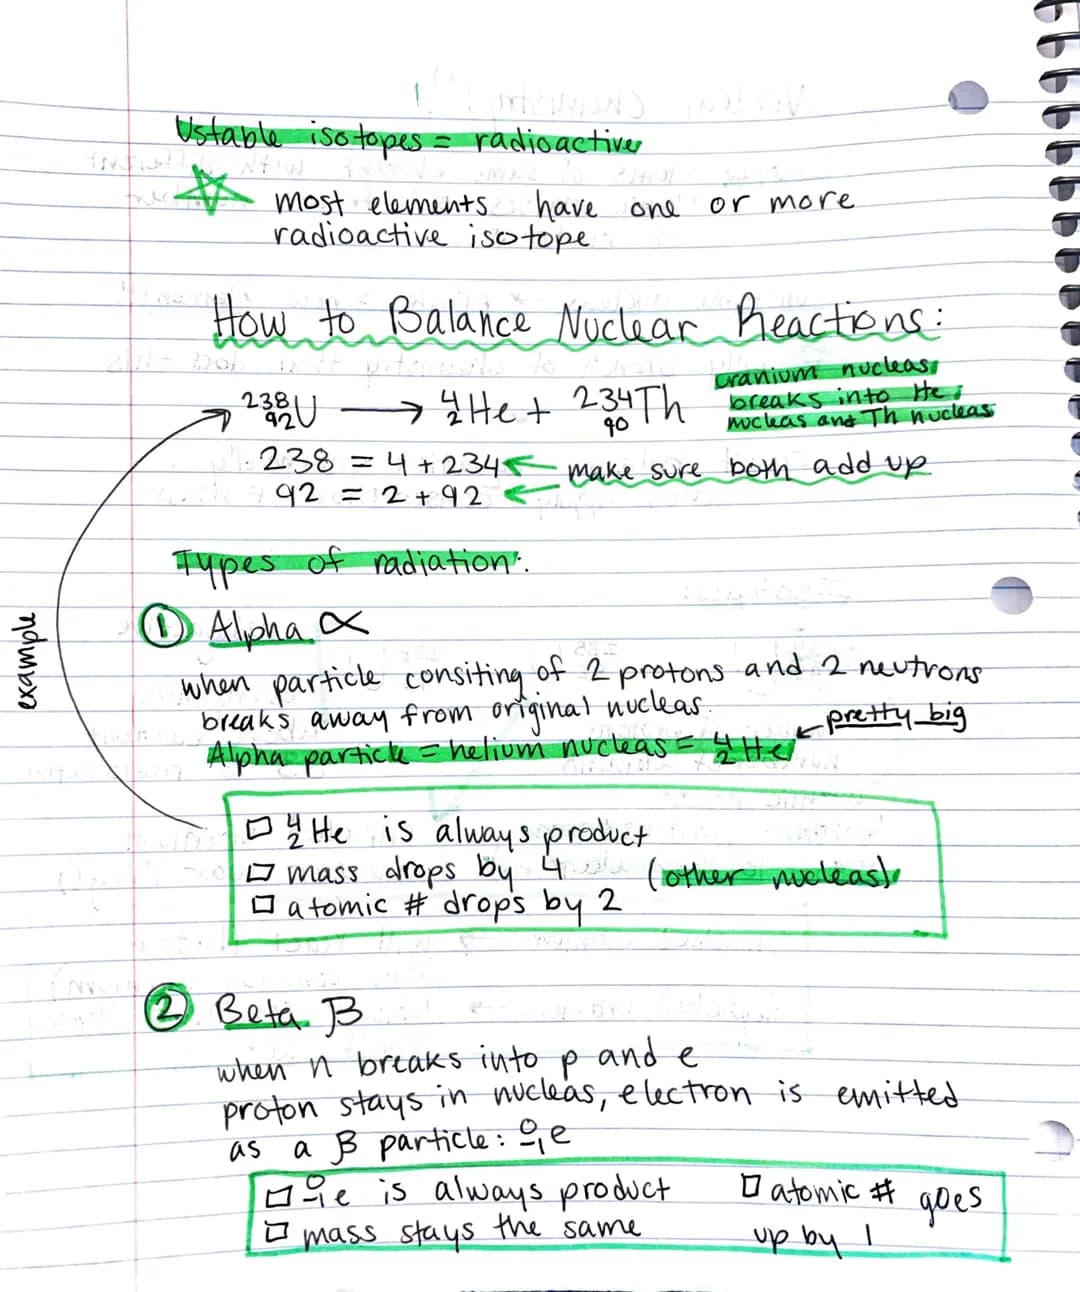 Ustable isotopes = radioactive
most elements have one or more
radioactive isotope
How to Balance Nuclear Reactions:
²³⁸₉₂U → ⁴₂He + ²³⁴₉₀Th
uranium nucleas
breaks into He
nucleas and Th nucleas
238 = 4 + 234 ← make sure both add up
92 = 2 + 92 ←
Types of radiation:
① Alpha ∝
example
when particle consiting of 2 protons and 2 neutrons
breaks away from original nucleas.
Alpha particle = helium nucleas = ⁴₂He ← pretty big
□ ⁴₂He is always product
□ mass drops by 4 (other nucleas)
□ atomic # drops by 2
② Beta β
when n breaks into p and e
proton stays in nucleas, electron is emitted
as a β particle: ⁰₋₁e
□ ⁰₋₁e is always product □ atomic # goes
□ mass stays the same up by 1